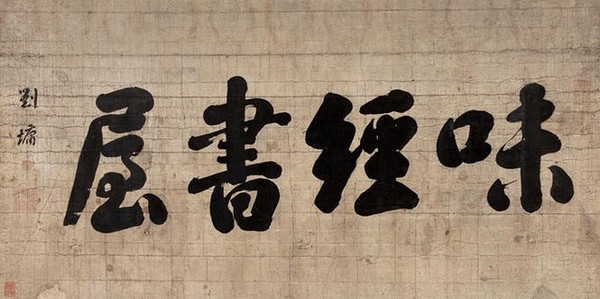 味經書屋
劉墉